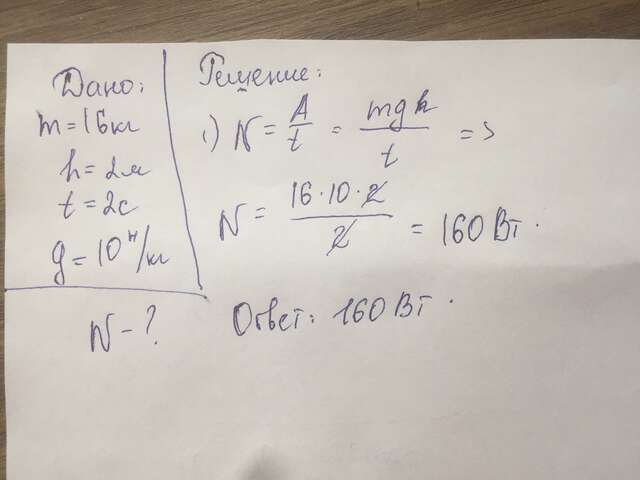 Дано:
m = 16 кг
h = 2 м
t = 2 с
g = 10 н/кг
N - ?
Решение:
1) N = A/t = mgh/t =>
N = 16·10·2/2 = 160 Вт.
Ответ: 160 Вт.